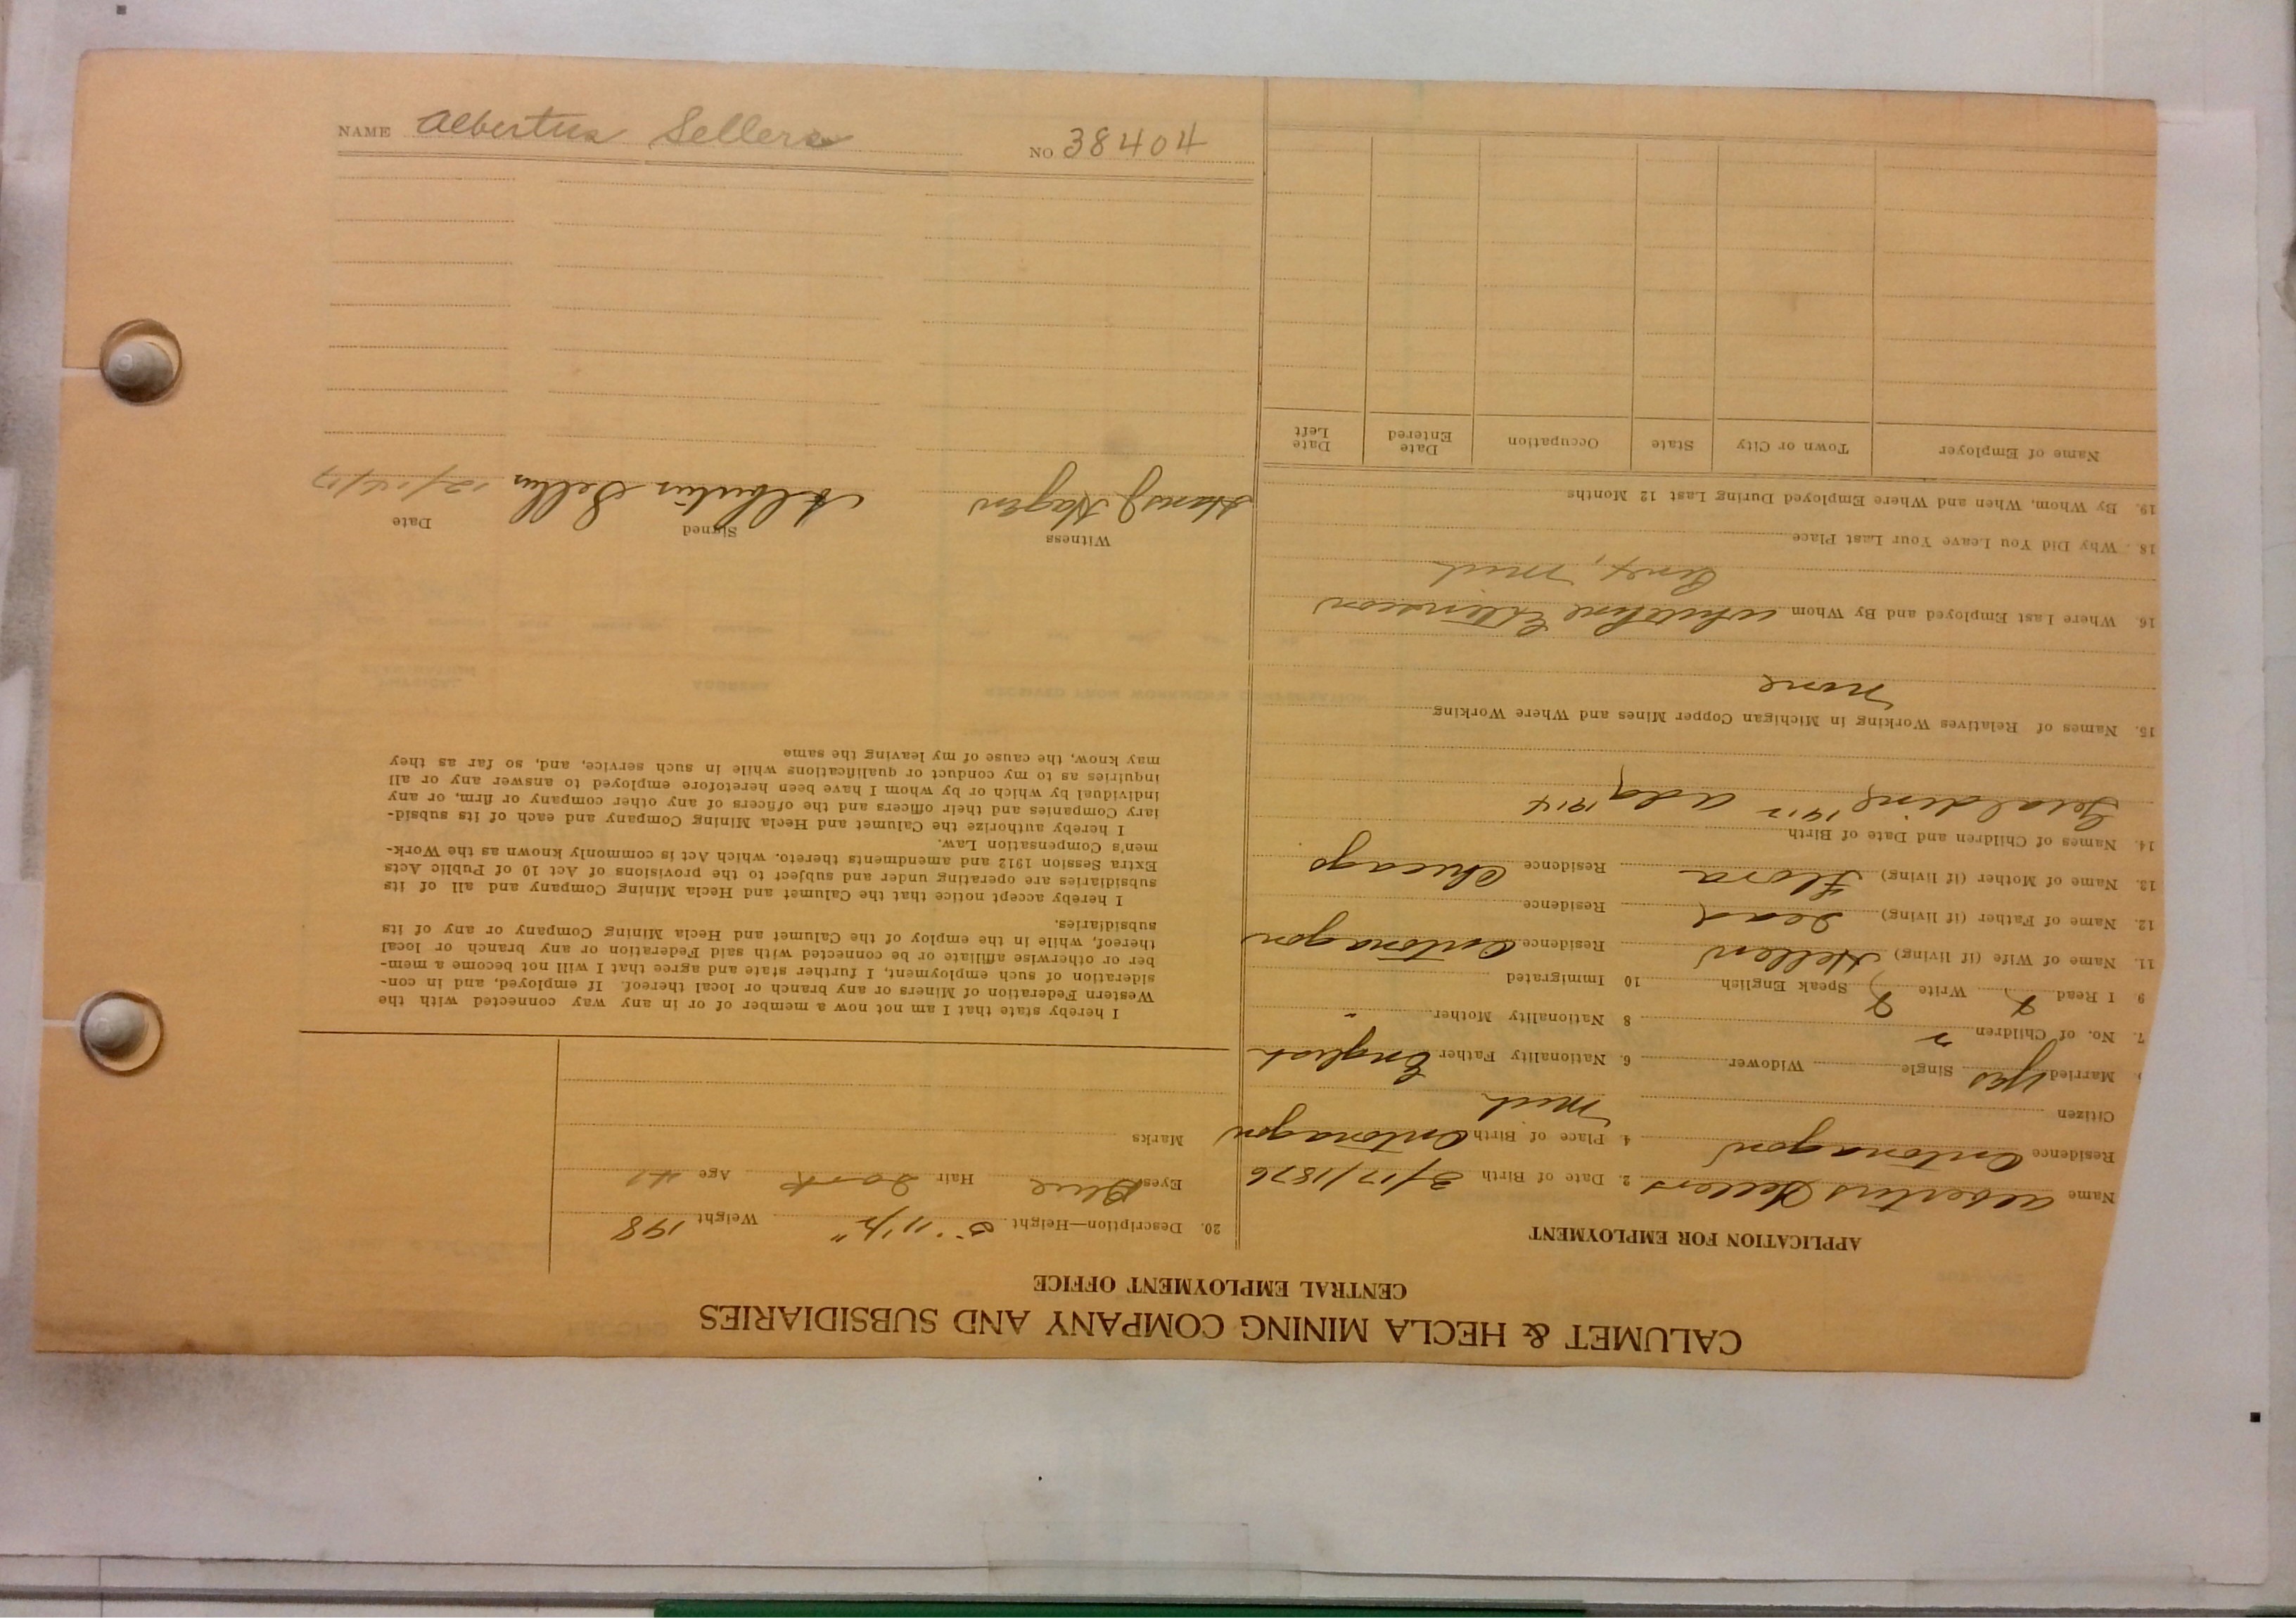 NAME Albertus Sellers NO 38404
CALUMET & HECLA MINING COMPANY AND SUBSIDIARIES
CENTRAL EMPLOYMENT OFFICE
APPLICATION FOR EMPLOYMENT
Name Albertus Sellers 2. Date of Birth 3/17/1876
Residence Ontonagon 4. Place of Birth Ontonagon
Mich
Citizen
Married Yes Single Widower 6. Nationality Father English
7. No. of Children 2 8 Nationality Mother "
9 I Read Write Speak English 10 Immigrated
11. Name of Wife (if living) Hellen Residence Ontonagon
12. Name of Father (if living) Dead Residence
13. Name of Mother (if living) Flora Residence Chicago
14. Names of Children and Date of Birth
1912 Ada 1914
15. Names of Relatives Working in Michigan Copper Mines and Where Working
None
16. Where Last Employed and By Whom
Mich
18. Why Did You Leave Your Last Place
19. By Whom, When and Where Employed During Last 12 Months
Name of Employer Town or City State Occupation Date Entered Date Left
20. Description—Height 5' 11½" Weight 198
Eyes Blue Hair Dark Age 41
Marks
I hereby state that I am not now a member of or in any way connected with the
Western Federation of Miners or any branch or local thereof. If employed, and in con-
sideration of such employment, I further state and agree that I will not become a mem-
ber or otherwise affiliate or be connected with said Federation or any branch or local
thereof, while in the employ of the Calumet and Hecla Mining Company or any of its
subsidiaries.
I hereby accept notice that the Calumet and Hecla Mining Company and all of its
subsidiaries are operating under and subject to the provisions of Act 10 of Public Acts
Extra Session 1912 and amendments thereto, which Act is commonly known as the Work-
men's Compensation Law.
I hereby authorize the Calumet and Hecla Mining Company and each of its subsid-
iary Companies and their officers and the officers of any other company or firm, or any
individual by which or by whom I have been heretofore employed to answer any or all
inquiries as to my conduct or qualifications while in such service, and, so far as they
may know, the cause of my leaving the same
Witness Signed Date
Hans J Hagen Albertus Sellers 12/14/17